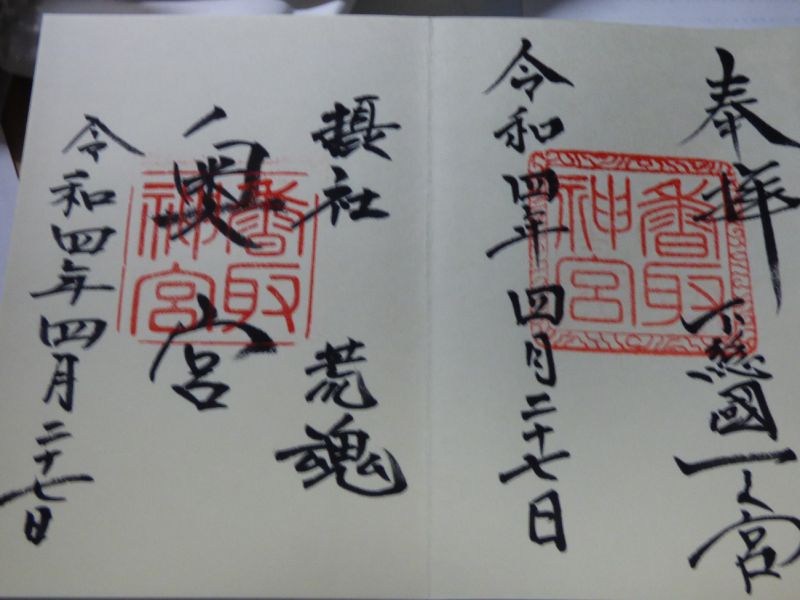 奉拝
下総國一之宮
香取神宮
令和四年四月二十七日
摂社
荒魂
奥宮
香取神宮
令和四年四月二十七日